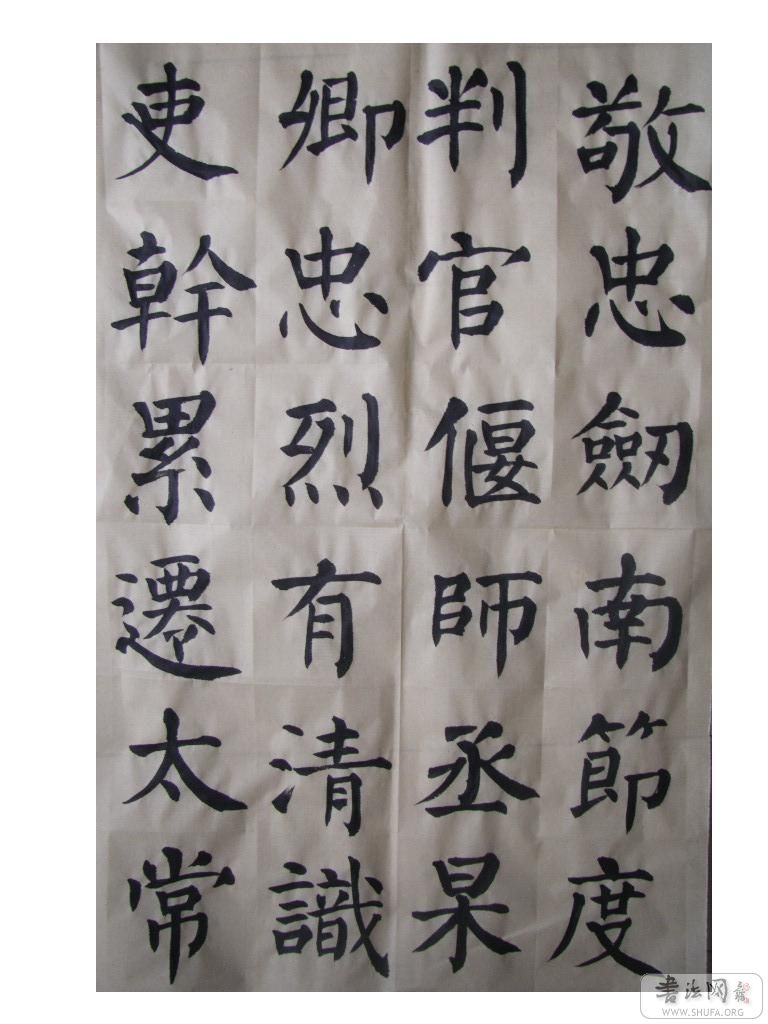 敬忠劒南節度
判官偃師丞杲
卿忠烈有清識
吏幹累遷太常
书法网
WWW.SHUFA.ORG